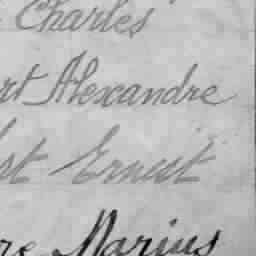 Charles
rt Alexandre
st Ernest
re Marius